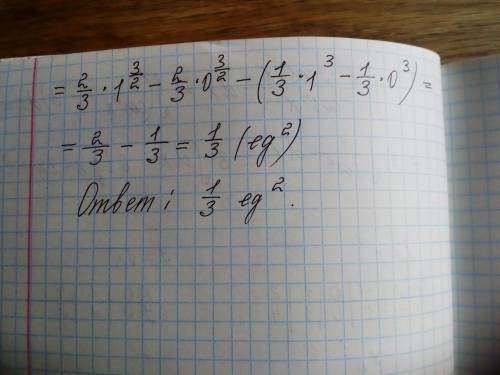 = 2/3 · 1^(3/2) − 2/3 · 0^(3/2) − (1/3 · 1^3 − 1/3 · 0^3) =
= 2/3 − 1/3 = 1/3 (ед²)
Ответ: 1/3 ед².